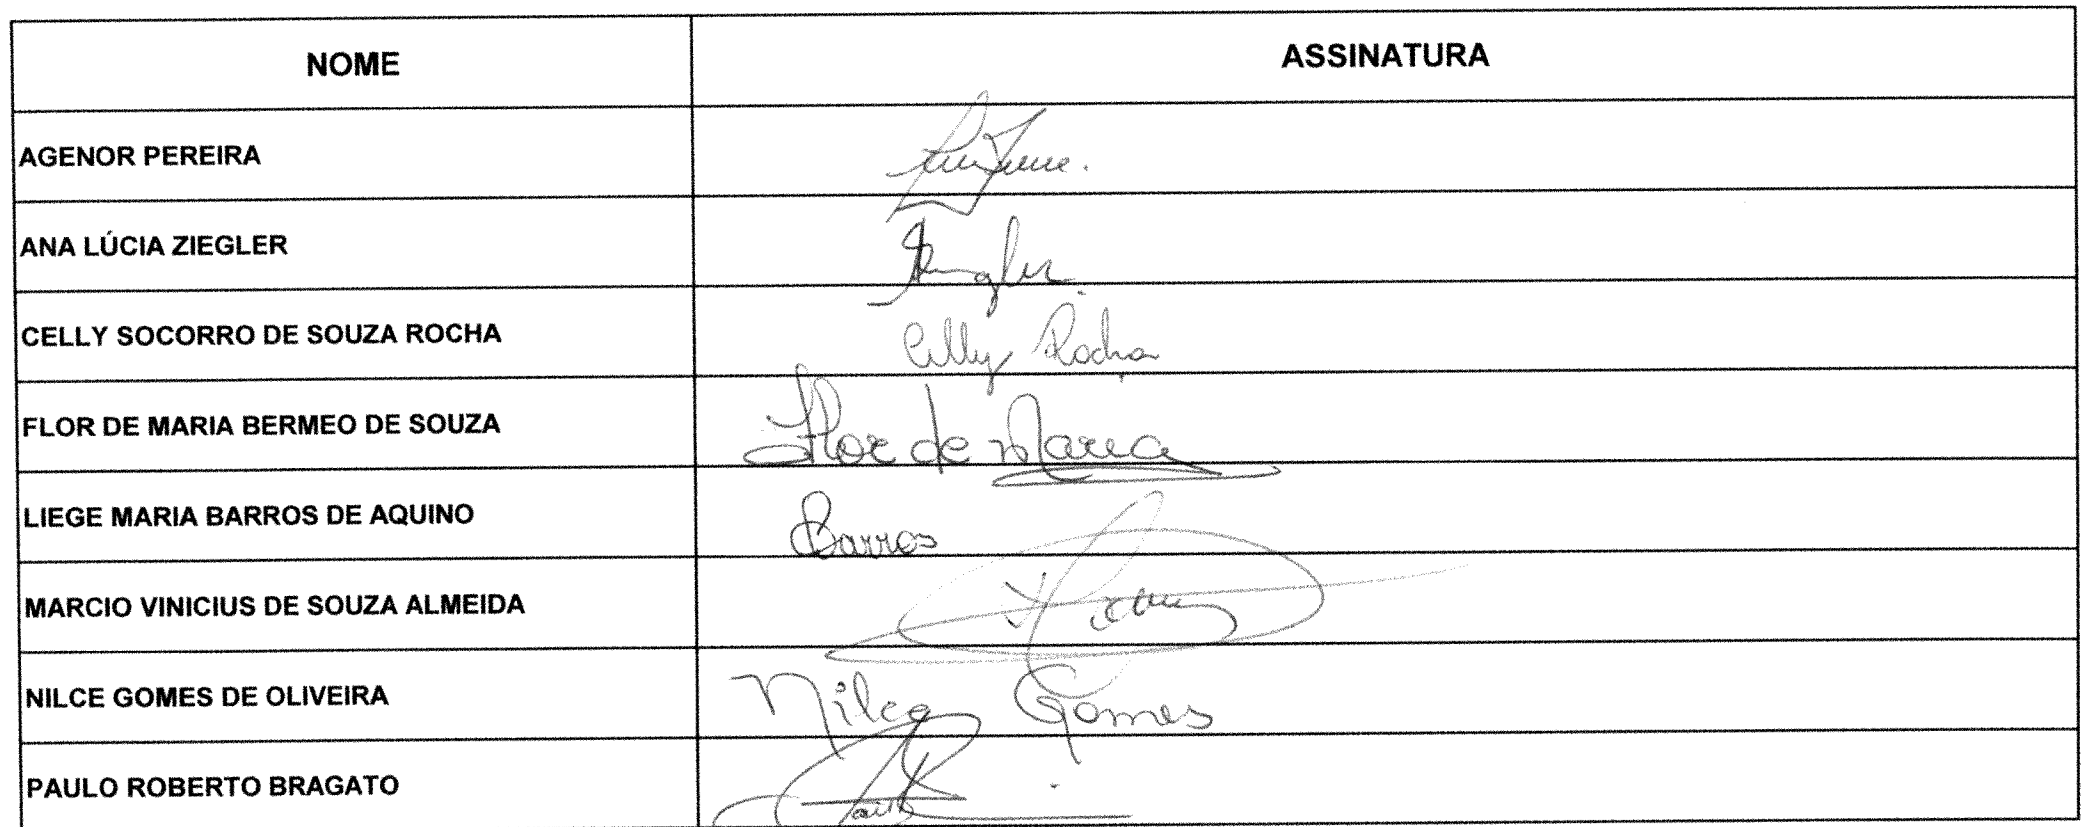 NOME ASSINATURA
AGENOR PEREIRA
ANA LÚCIA ZIEGLER
CELLY SOCORRO DE SOUZA ROCHA Celly Rocha
FLOR DE MARIA BERMEO DE SOUZA Flor de Maria
LIEGE MARIA BARROS DE AQUINO Barros
MARCIO VINICIUS DE SOUZA ALMEIDA
NILCE GOMES DE OLIVEIRA Nilce Gomes
PAULO ROBERTO BRAGATO